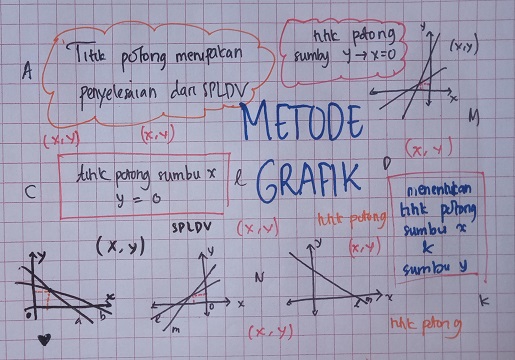 A
Titik potong merupakan
penyelesaian dari SPLDV
titik potong
sumbu y → x=0
y
(x,y)
x
M
(x,y)
(x,y)
METODE
GRAFIK
(x,y)
D
C
titik potong sumbu x
y = 0
l
menentukan
titik potong
sumbu x
&
sumbu y
K
SPLDV
(x,y)
titik potong
(x,y)
(x,y)
y
x
0
a
b
y
x
0
l
m
N
(x,y)
y
x
l
m
titik potong